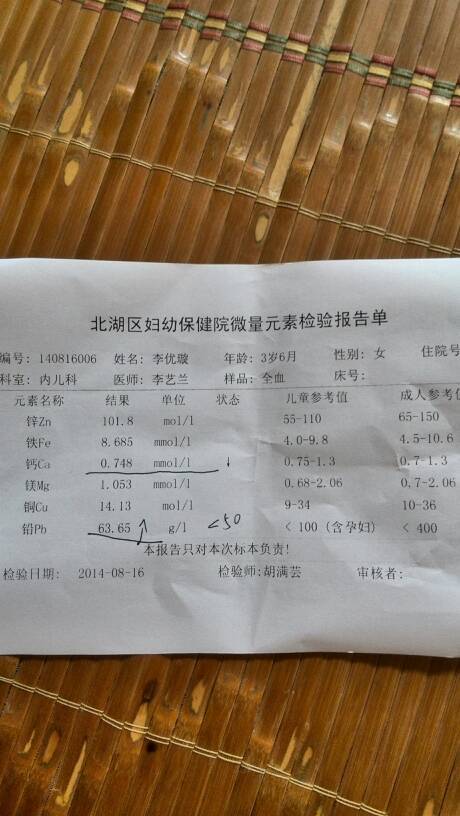 北湖区妇幼保健院微量元素检验报告单
编号: 140816006 姓名: 李优璇 年龄: 3岁6月 性别: 女 住院号
科室: 内儿科 医师: 李艺兰 样品: 全血 床号:
元素名称 结果 单位 状态 儿童参考值 成人参考值
锌Zn 101.8 mol/l 55-110 65-150
铁Fe 8.685 mmol/l 4.0-9.8 4.5-10.6
钙Ca 0.748 mmol/l ↓ 0.75-1.3 0.7-1.3
镁Mg 1.053 mmol/l 0.68-2.06 0.7-2.06
铜Cu 14.13 mol/l 9-34 10-36
铅Pb 63.65 ↑ g/l <50 < 100 (含孕妇) < 400
本报告只对本次标本负责!
检验日期: 2014-08-16 检验师: 胡满芸 审核者: